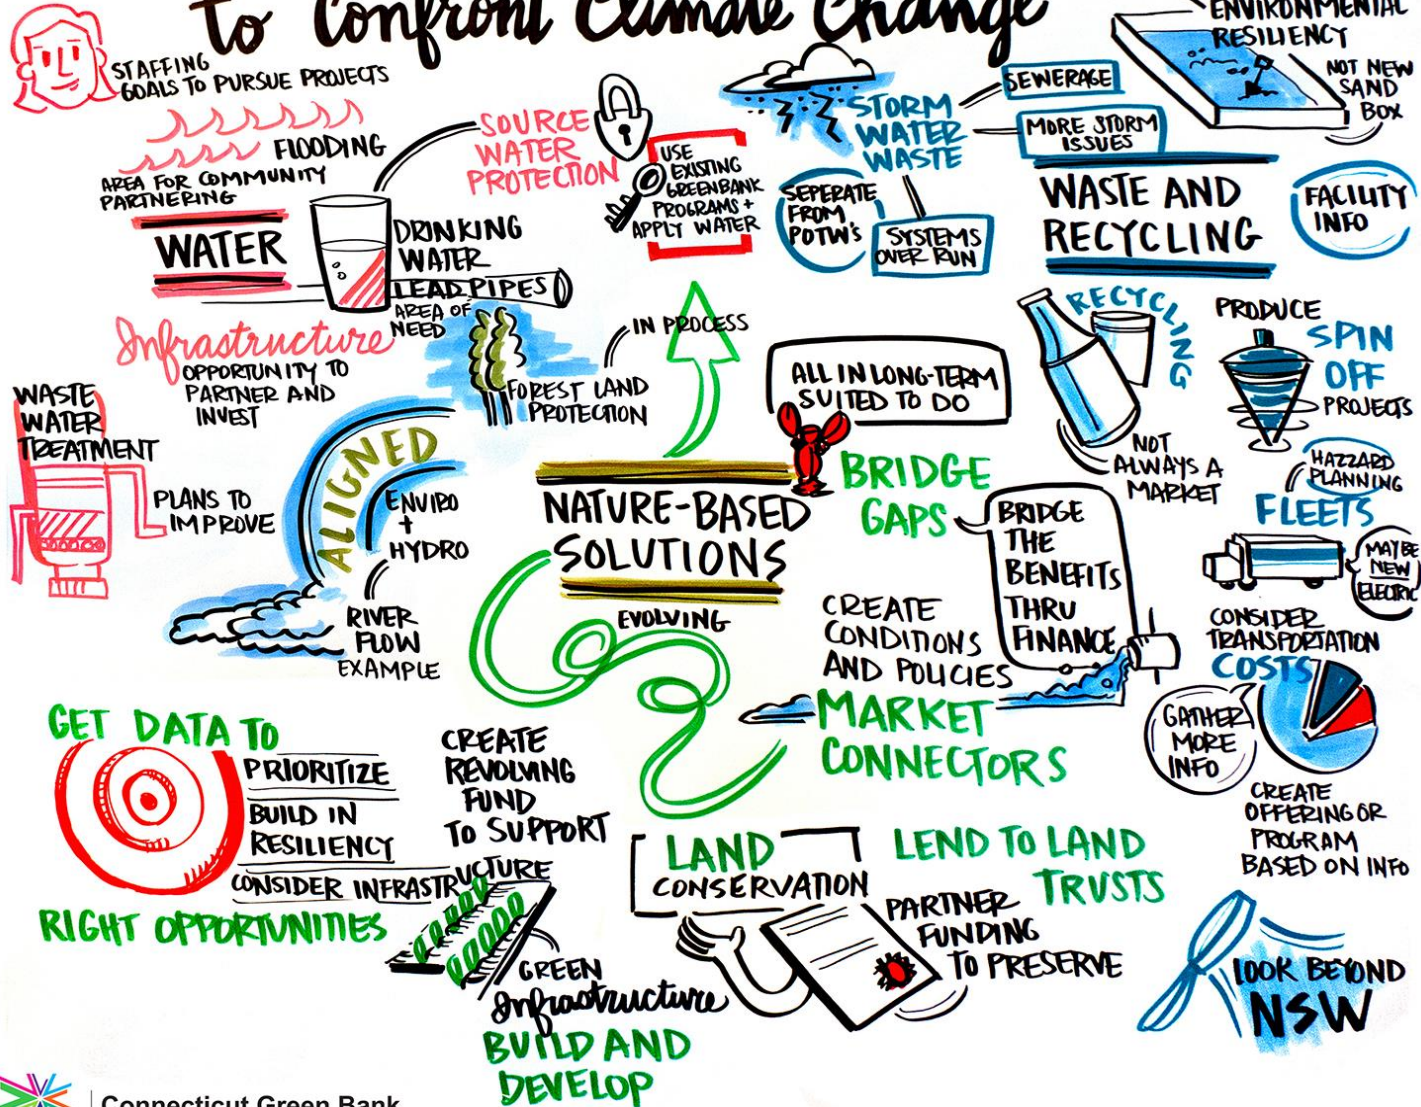 To Confront Climate Change
STAFFING
GOALS TO PURSUE PROJECTS
FLOODING
AREA FOR COMMUNITY
PARTNERING
WATER
SOURCE
WATER
PROTECTION
DRINKING
WATER
LEAD PIPES
AREA OF
NEED
USE
EXISTING
GREENBANK
PROGRAMS +
APPLY WATER
Infrastructure
OPPORTUNITY TO
PARTNER AND
INVEST
WASTE
WATER
TREATMENT
PLANS TO
IMPROVE
IN PROCESS
FOREST LAND
PROTECTION
ALIGNED
ENVIRO
+
HYDRO
RIVER
FLOW
EXAMPLE
STORM
WATER
WASTE
SEWERAGE
MORE STORM
ISSUES
SEPERATE
FROM
POTW'S
SYSTEMS
OVER RUN
ENVIRONMENTAL
RESILIENCY
NOT NEW
SAND
BOX
WASTE AND
RECYCLING
FACILITY
INFO
RECYCLING
NOT
ALWAYS A
MARKET
PRODUCE
SPIN
OFF
PROJECTS
HAZZARD
PLANNING
FLEETS
MAYBE
NEW
ELECTRIC
CONSIDER
TRANSPORTATION
COSTS
GATHER
MORE
INFO
CREATE
OFFERING OR
PROGRAM
BASED ON INFO
LOOK BEYOND
NSW
NATURE-BASED
SOLUTIONS
EVOLVING
ALL IN LONG-TERM
SUITED TO DO
BRIDGE
GAPS
BRIDGE
THE
BENEFITS
THRU
FINANCE
CREATE
CONDITIONS
AND POLICIES
MARKET
CONNECTORS
GET DATA TO
PRIORITIZE
BUILD IN
RESILIENCY
CONSIDER INFRASTRUCTURE
RIGHT OPPORTUNITIES
CREATE
REVOLVING
FUND
TO SUPPORT
GREEN
Infrastructure
BUILD AND
DEVELOP
LAND
CONSERVATION
LEND TO LAND
TRUSTS
PARTNER
FUNDING
TO PRESERVE
Connecticut Green Bank